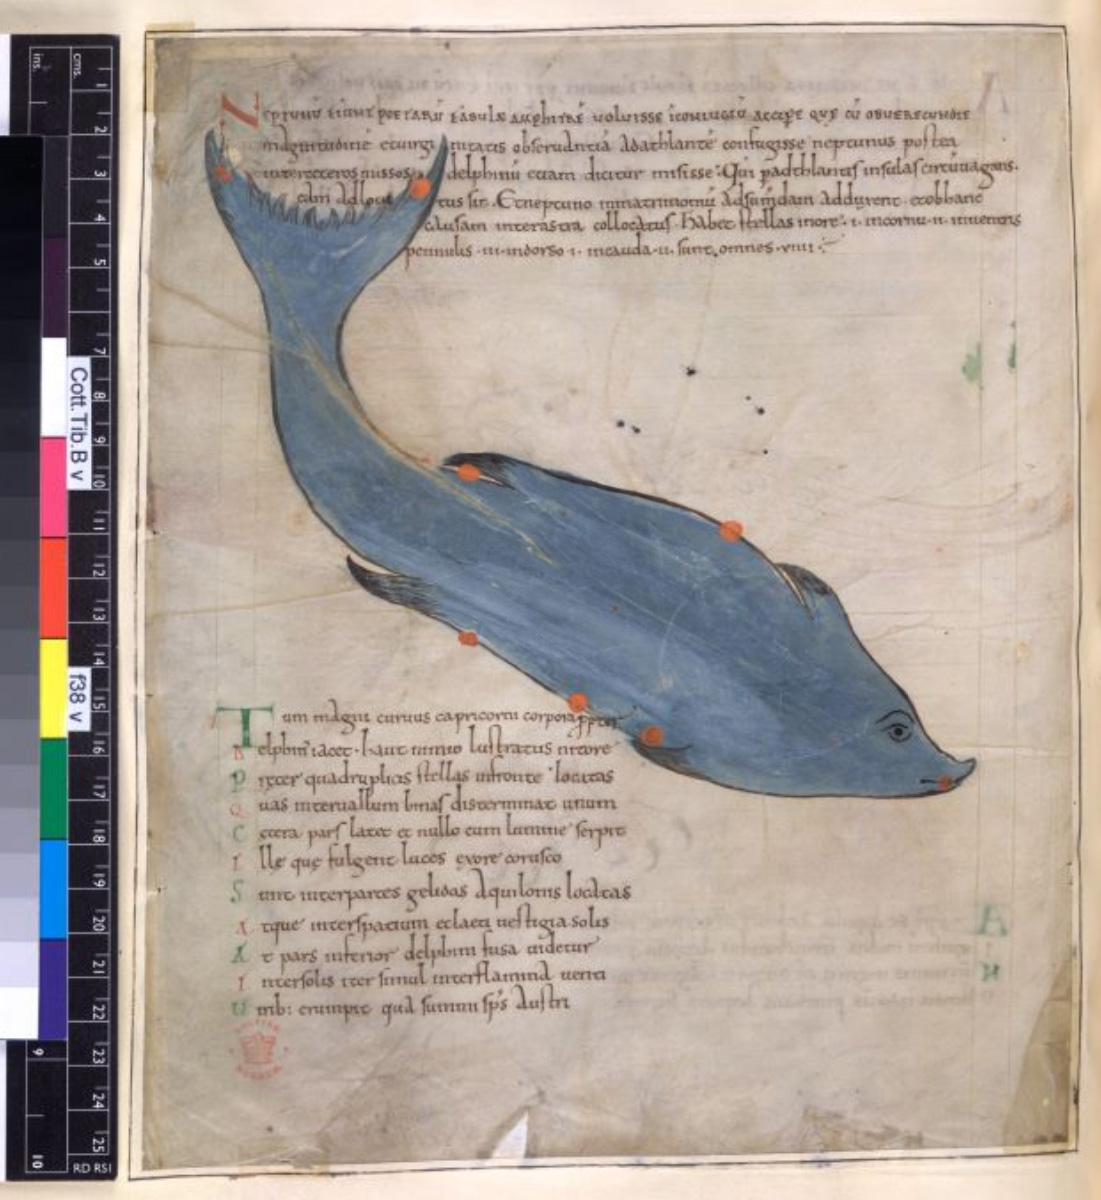 Neptunū fiunt poetarū fabulæ amphitrē voluisse īconiugiū accipe quę cū obuerecundie
magnitudinē etuirginitatis obseruantiā adathlantē confugisse neptunus postea
intercęterosmissos delphinū etiam dicitur misisse. Qui padthlantis insulas circūuagans.
eam adlocutus sit. Etneptuno inmatrimoniū adsumdam adduxerit. etobhanc
causam interastra collocatus. Habet stellas inore .i. incornu .ii. inuentris
pennulis .iii. indorso .i. incauda .ii. sunt omnes .viiii.
Tum magni curuus capricorni corpora ppter
Delphin' iacet. haut nimio lustratus nitore
Pręter quadruplicis stellas infronte locatas
Quas interuallum binas disterminat unum
Cetera pars latet et nullo cum lumine serpit
Ille quę fulgent luces exore corusco
Sunt interpartes gelidas aquilonis locatas
Atque interspatium etlaeti uestigia solis
At pars inferior delphini fusa uidetur
Intersolis iter simul interflamina uenti
Uirib: erumpit quā summi sp̄s austri
Cott.Tib.B v
f38 v
ins.
cms.
1
2
3
4
5
7
8
9
10
11
12
13
14
15
16
17
18
19
20
21
22
23
24
25
9
10
RD RSI